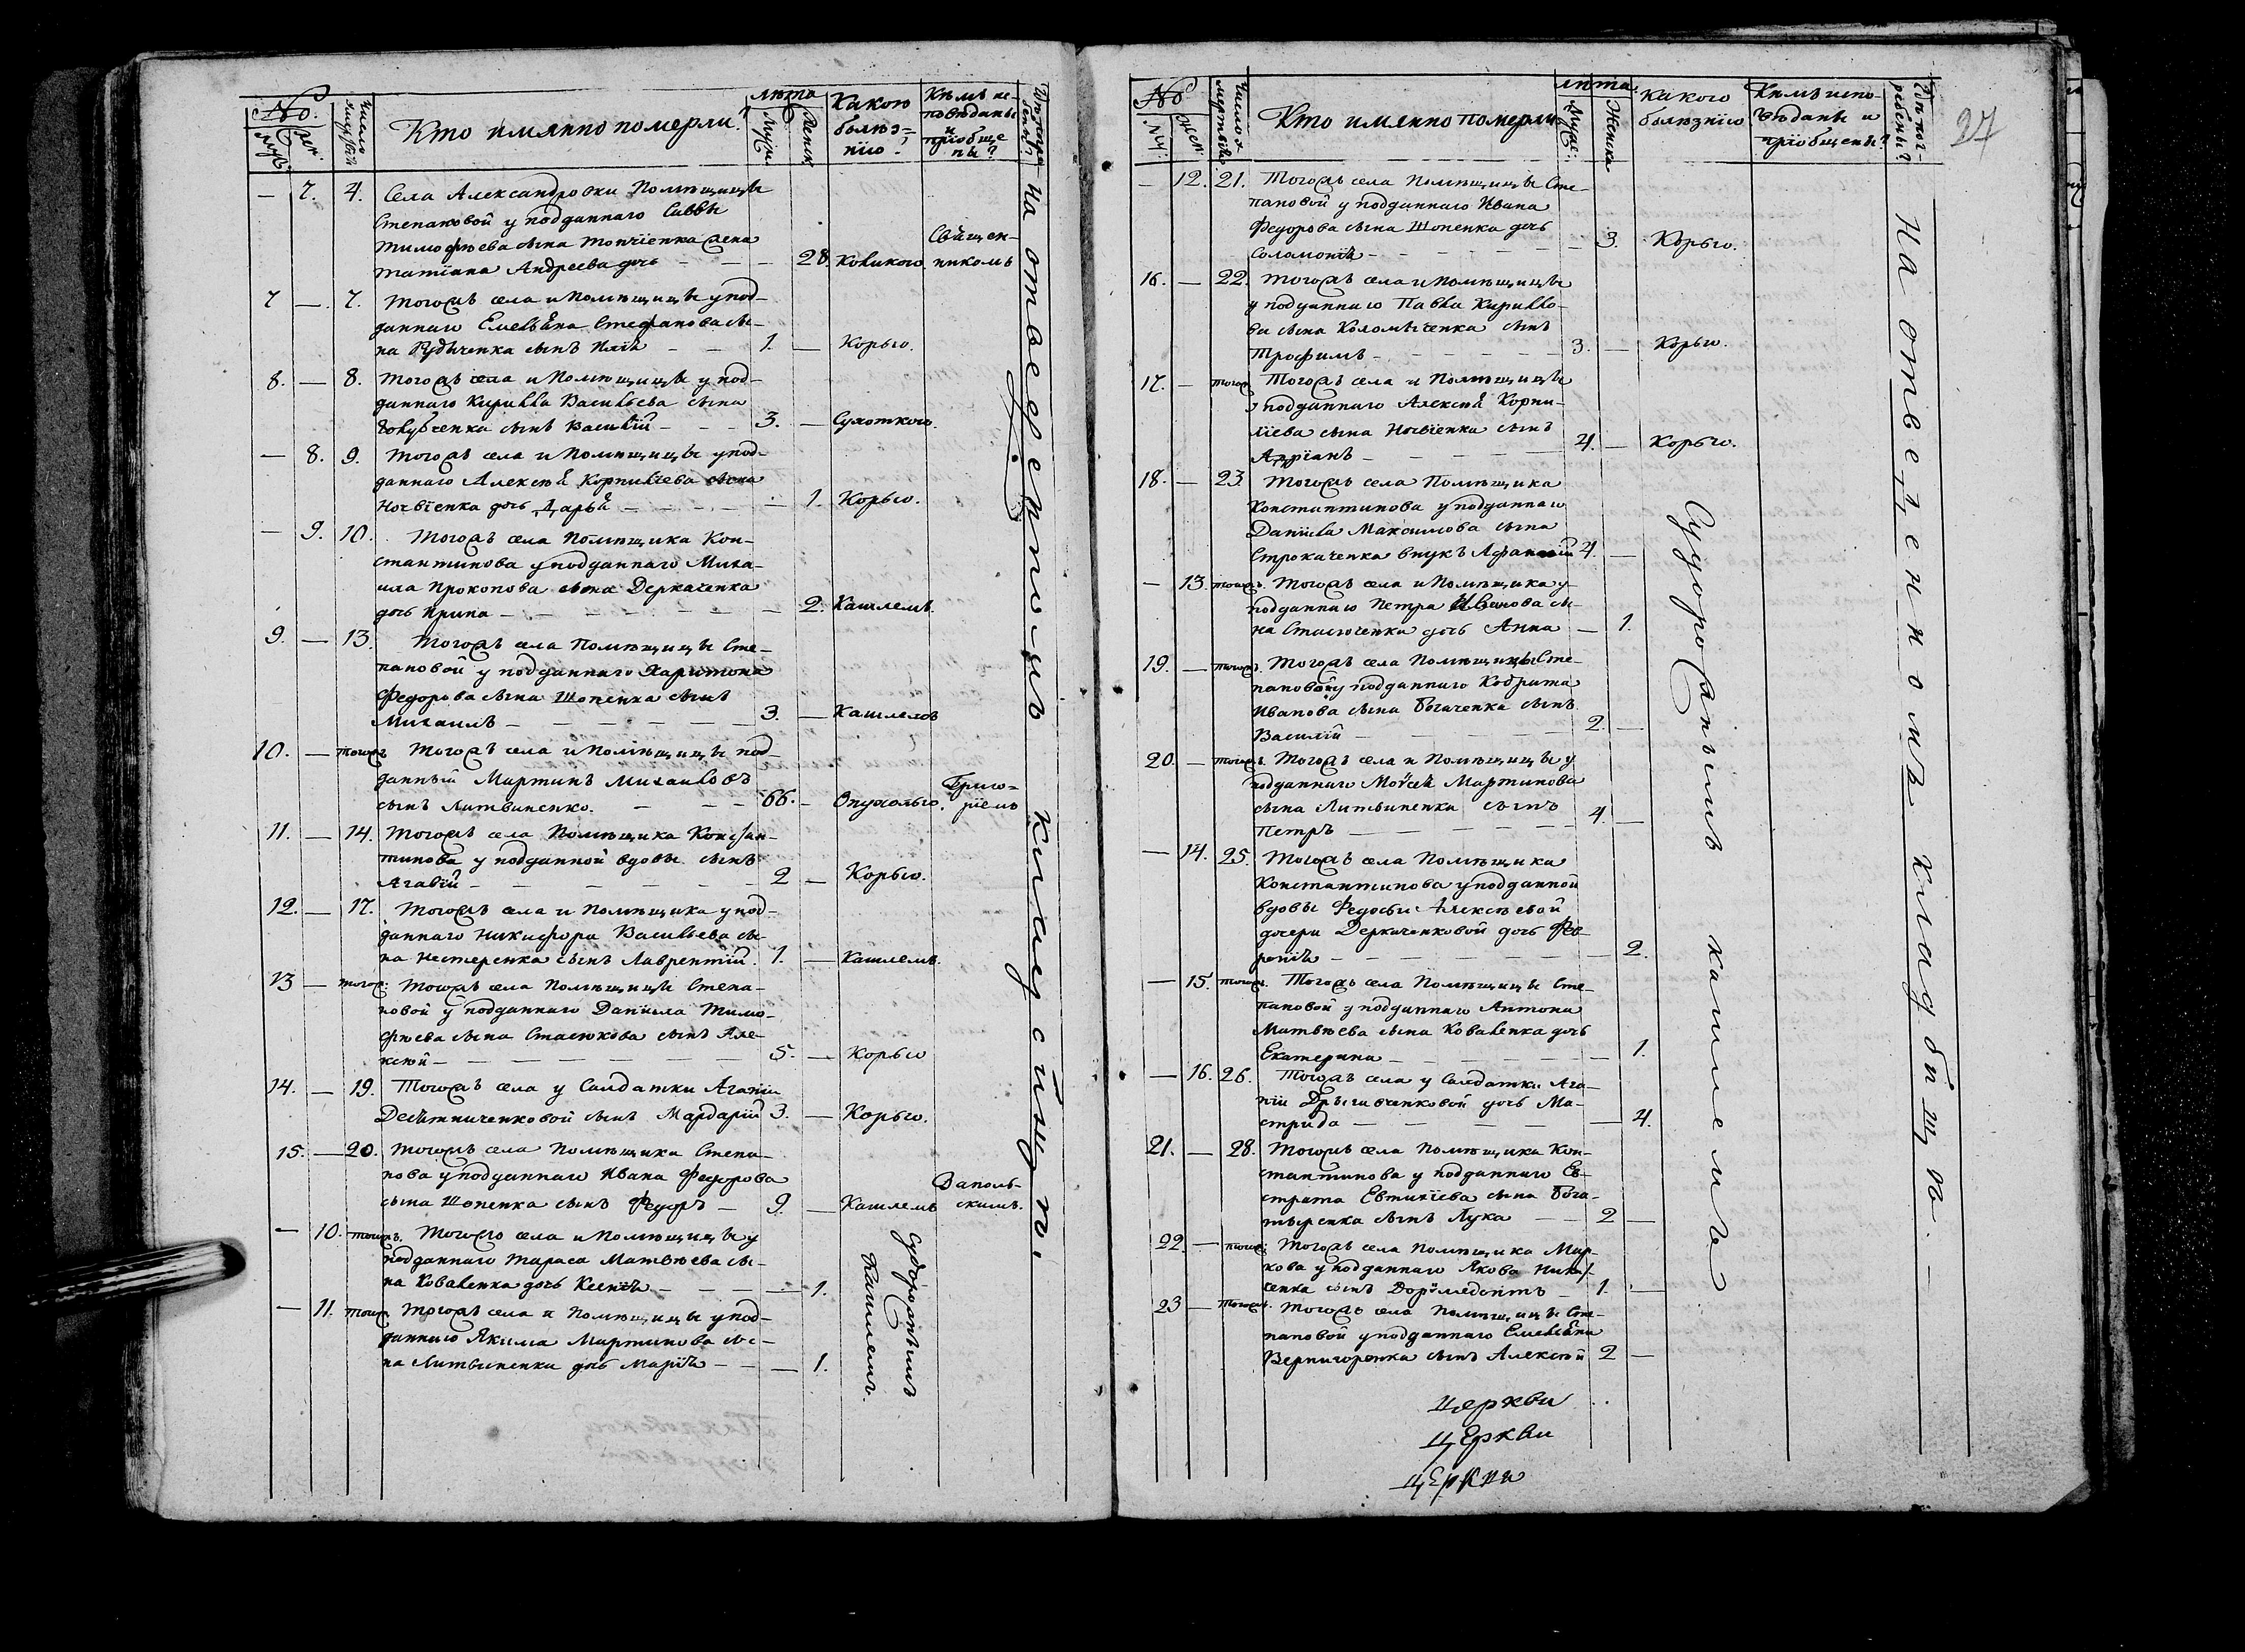 №.
Муж.
Жен.
Число умершихъ
Кто имянно померли?
лѣта
Мужс.
Женск.
Какою болѣз=
нію?
Кѣмъ ис-
повѣданы
и
пріобще
ны?
7. 4. Села Александровки Помѣщицы
Степановой у подданнаго Саввы
Тимофѣева сына Топчіенка жена
Татіана Андреева дочь — — — 28. Коликою. Свѧщен-
никомъ
7 — 7. Тогожъ села и Помѣщицы у под-
даннаго Емельѧна Стефанова сы-
на Рудѣченка сынъ Иліѧ — — 1. — Корью.
8. — 8. Тогожъ села и Помѣщицы у под-
даннаго Кирилла Васильева сына
Голубченка сынъ Василій — — — 3. — Сухоткою.
— 8. 9. Тогожъ села и Помѣщицы у под-
даннаго Алексѣѧ Корниліева сына
Ночвіенка дочь Дарьѧ — — — — 1. Корью.
— 9. 10. Тогожъ села Помѣщика Кон-
стантинова у подданнаго Миха-
ила Прокопова сына Деркаченка
дочь Ирина — — — — 2. Кашлемъ.
9. — 13. Тогожъ села Помѣщицы Сте-
пановой у подданнаго Харитона
Федорова сына Шопенка сынъ
Михаилъ — — — — — 3. — Кашлемъ
10. — тогожъ Тогожъ села и Помѣщицы под-
данный Мартинъ Михайловъ
сынъ Литвиненко. — — — 66. — Опухолью. Григо=
ріемъ
11. — 14. Тогожъ села Помѣщика Констан-
тинова у подданной вдовы сынъ
Агавій — — — — — 2 — Корью.
12. — 17. Тогожъ села и Помѣщика у под-
даннаго Никифора Васильева сы-
на Нестеренка сынъ Лаврентій. 1. — Кашлемъ.
13 — тогож: Тогожъ села Помѣщицы Степа-
новой у подданнаго Даніила Тимо-
фѣева сына Стасюкова сынъ Але-
ксѣй — — — — — 5. — Корью
14. — 19. Тогожъ села у Салдатки Агапіи
Десѧтниченковой сынъ Мардарій 3. — Корью.
15. — 20. Тогожъ села Помѣщика Степа-
нова у подданнаго Ивана Федорова
сына Шопенка сынъ Федоръ — 9. — Кашлемъ Даполь-
скимъ.
— 10. тогожъ. Тогожъ села и Помѣщицы у
подданнаго Тараса Матвѣева сы-
на Коваленка дочь Ксеніѧ — — — — 1.
— 11. тогож Тогожъ села и Помѣщицы у под-
даннаго Якима Мартинова сы-
на Литвиненка дочь Маріѧ — — — 1.
Судорожнымъ
Кашлемъ.
на отведенномъ кладбищѣ.
№
Муж.
Жен.
Число умершихъ
Кто имянно померли
лѣта.
Мужс:
Женска
какого
болѣзнію
Кѣмъ испо-
вѣданы и
пріобщены?
27
— 12. 21. Тогожъ села Помѣщицы Сте-
пановой у подданнаго Ивана
Федорова сына Шопенка дочь
Соломоніѧ — — — — — 3. Корью.
16. — 22. Тогожъ села и Помѣщицы
у подданнаго Павла Кирилло-
ва сына Коломыченка сынъ
Трофимъ — — — — — 3. — Корью.
17. — тогож Тогожъ села и Помѣщицы
у подданнаго Алексѣѧ Корни-
ліева сына Ночвіенка сынъ
Адріанъ — — — — 4. — Корью.
18. — 23. Тогожъ села Помѣщика
Константинова у подданнаго
Даніила Максимова сына
Строкаченка внукъ Афанасій 4. —
— 13. тогожъ Тогожъ села и Помѣщика у
подданнаго Петра Иванова сы-
на Стасюченка дочь Анна — 1.
19. — тогожъ. Тогожъ села Помѣщицы Сте-
пановой у подданнаго Кодрата
Иванова сына Богаченка сынъ
Василій — — — — — 2. —
20. — тогожъ. Тогожъ села и Помѣщицы у
подданнаго Моѵсеѧ Мартинова
сына Литвиненка сынъ
Петръ — — — — — 4. —
— 14. 25. Тогожъ села Помѣщика
Константинова у подданной
вдовы Федосьи Алексѣевой
дочери Деркаченковой дочь Фев-
роніѧ — — — — — 2.
— 15. тогожъ. Тогожъ села Помѣщицы Сте-
пановой у подданнаго Антона
Матвѣева сына Коваленка дочь
Екатерина — — — — — 1.
— 16. 26. Тогожъ села у Салдатки Ага-
піи Дрыгивченковой дочь Ма-
стрида — — — — — 4.
21. — 28. Тогожъ села Помѣщика Кон-
стантинова у подданнаго Ев-
страта Евтихіева сына Бога-
тыренка сынъ Лука — — 2 —
22. — тогож: Тогожъ села Помѣщика Мар-
кова у подданнаго Якова
ченка сынъ Доримедонтъ — 1. —
23 — тогожъ. Тогожъ села Помѣщицы Сте-
пановой у подданнаго Емельѧна
Вернигоренка сынъ Алексѣй 2 —
Судорожнымъ кашлемъ
На отведенномъ кладбищѣ. —
Церкви
Церкви
Церкви